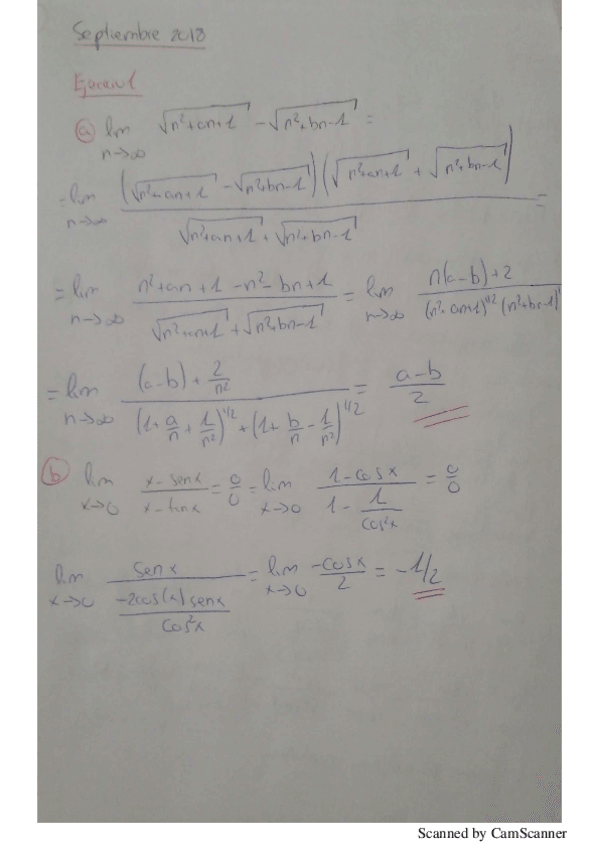 Septiembre 2018
Ejercicio 1
a) lim n→∞ √(n²+an+1) - √(n²+bn-1) =
= lim n→∞ (√(n²+an+1) - √(n²+bn-1))(√(n²+an+1) + √(n²+bn-1)) / (√(n²+an+1) + √(n²+bn-1)) =
= lim n→∞ (n²+an+1-n²-bn+1) / (√(n²+an+1) + √(n²+bn-1)) = lim n→∞ (n(a-b)+2) / ((n²+an+1)^1/2 (n²+bn-1)^1
= lim n→∞ ((a-b) + 2/n²) / ((1+a/n+1/n²)^1/2 + (1+b/n-1/n²)^1/2) = (a-b)/2
b) lim x→0 (x-senx)/(x-tanx) = 0/0 = lim x→0 (1-cosx)/(1-1/cos²x) = 0/0
lim x→0 senx / (-2cos(x)senx/cos²x) = lim x→0 -cosx/2 = -1/2
Scanned by CamScanner